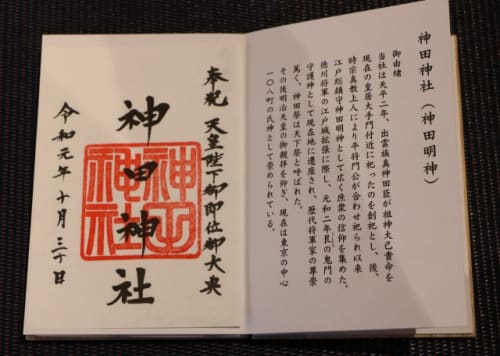 神田神社(神田明神)
御由緒
当社は天平二年、出雲族真神田臣が祖神大己貴命を
現在の皇居大手門付近に祀ったのを創祀とし、後、
時宗真教上人により平将門公が合わせ祀られ以来
江戸総鎮守神田明神として広く庶衆の信仰を集めた。
徳川将軍の江戸城拡張に際し、元和二年艮の鬼門の
守護神として現在地に遷座され、歴代将軍家の尊崇
篤く、神田祭は天下祭と呼ばれた。
その後明治天皇の御親拝を仰ぎ、現在は東京の中心
一〇八町の氏神として崇められている。
奉祝 天皇陛下御即位御大典
神田神社
神田
神社
令和元年十月三十日